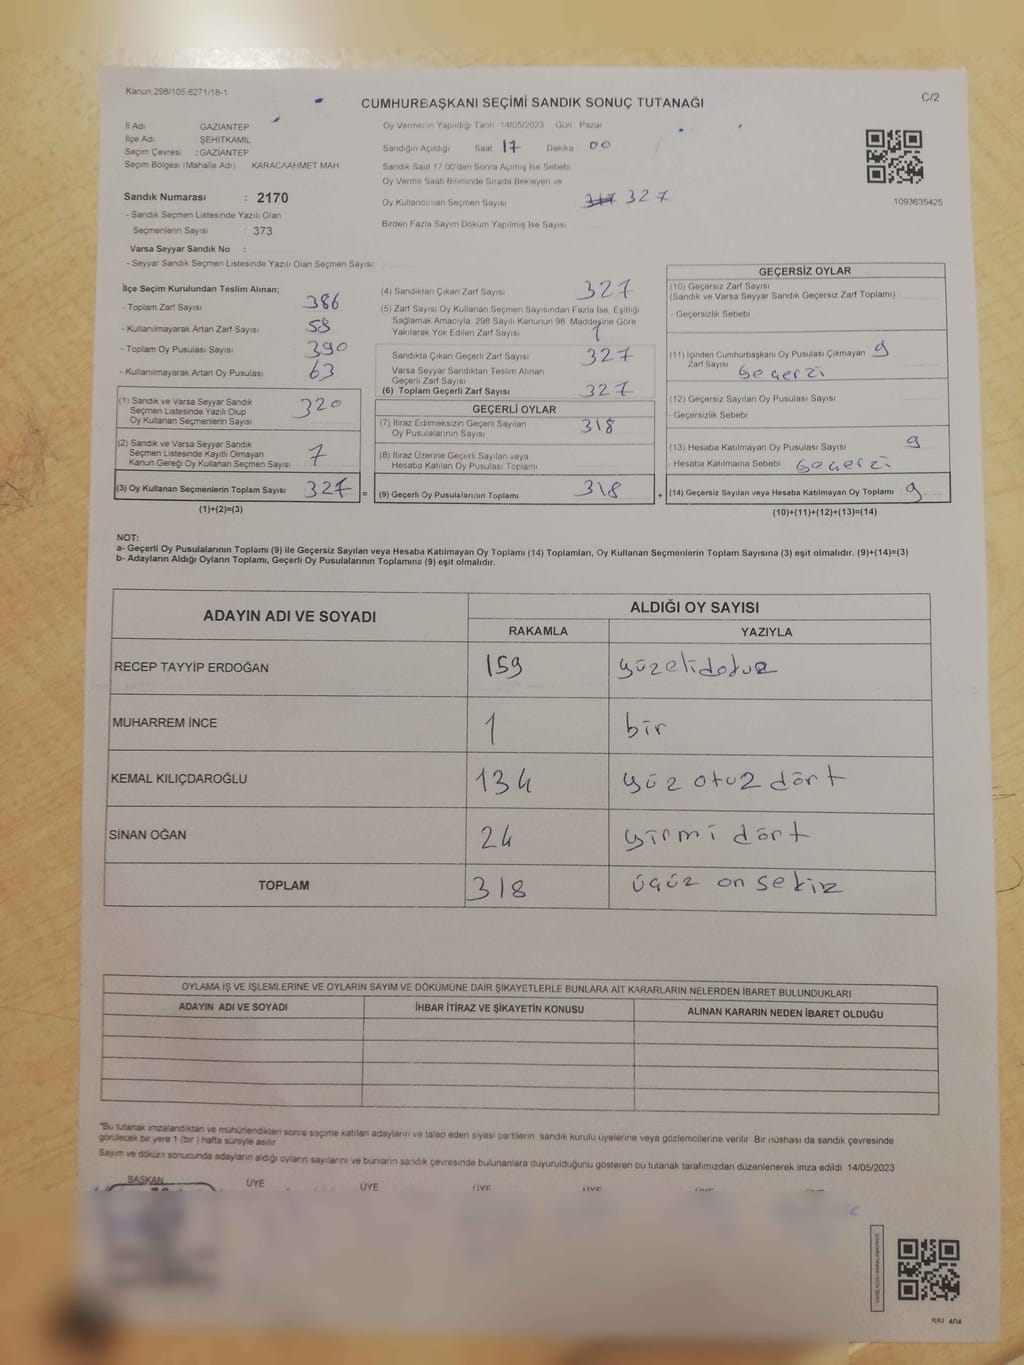 Kanun 298/105 6271/18-1
C/2
CUMHURBAŞKANI SEÇİMİ SANDIK SONUÇ TUTANAĞI
İl Adı GAZİANTEP
İlçe Adı ŞEHİTKAMİL
Seçim Çevresi : GAZİANTEP
Seçim Bölgesi (Mahalle Adı) KARACAAHMET MAH
Sandık Numarası : 2170
- Sandık Seçmen Listesinde Yazılı Olan
Seçmenlerin Sayısı : 373
Varsa Seyyar Sandık No :
- Seyyar Sandık Seçmen Listesinde Yazılı Olan Seçmen Sayısı
Oy Vermenin Yapıldığı Tarih 14/05/2023 Gün Pazar
Sandığın Açıldığı Saat 17 Dakika 00
Sandık Saat 17:00'den Sonra Açılmış İse Sebebi
Oy Verme Saati Bitiminde Sırada Bekleyen ve
Oy Kullandırılan Seçmen Sayısı 327
Birden Fazla Sayım Döküm Yapılmış İse Sayısı
1093635425
İlçe Seçim Kurulundan Teslim Alınan;
- Toplam Zarf Sayısı 386
- Kullanılmayarak Artan Zarf Sayısı 58
- Toplam Oy Pusulası Sayısı 390
- Kullanılmayarak Artan Oy Pusulası 63
(1) Sandık ve Varsa Seyyar Sandık
Seçmen Listesinde Yazılı Olup
Oy Kullanan Seçmenlerin Sayısı 320
(2) Sandık ve Varsa Seyyar Sandık
Seçmen Listesinde Kayıtlı Olmayan
Kanun Gereği Oy Kullanan Seçmen Sayısı 7
(3) Oy Kullanan Seçmenlerin Toplam Sayısı 327 =
(1)+(2)=(3)
(4) Sandıktan Çıkan Zarf Sayısı 327
(5) Zarf Sayısı Oy Kullanan Seçmen Sayısından Fazla İse, Eşitliği
Sağlamak Amacıyla 298 Sayılı Kanunun 98. Maddesine Göre
Yakılarak Yok Edilen Zarf Sayısı 1
Sandıkta Çıkan Geçerli Zarf Sayısı 327
Varsa Seyyar Sandıktan Teslim Alınan
Geçerli Zarf Sayısı
(6) Toplam Geçerli Zarf Sayısı 327
GEÇERLİ OYLAR
(7) İtiraz Edilmeksizin Geçerli Sayılan
Oy Pusulalarının Sayısı 318
(8) İtiraz Üzerine Geçerli Sayılan veya
Hesaba Katılan Oy Pusulası Toplamı
(9) Geçerli Oy Pusulalarının Toplamı 318 +
GEÇERSİZ OYLAR
(10) Geçersiz Zarf Sayısı
(Sandık ve Varsa Seyyar Sandık Geçersiz Zarf Toplamı)
- Geçersizlik Sebebi
(11) İçinden Cumhurbaşkanı Oy Pusulası Çıkmayan 9
Zarf Sayısı
(12) Geçersiz Sayılan Oy Pusulası Sayısı
- Geçersizlik Sebebi
(13) Hesaba Katılmayan Oy Pusulası Sayısı 9
- Hesaba Katılmama Sebebi
(14) Geçersiz Sayılan veya Hesaba Katılmayan Oy Toplamı 9
(10)+(11)+(12)+(13)=(14)
NOT:
a- Geçerli Oy Pusulalarının Toplamı (9) ile Geçersiz Sayılan veya Hesaba Katılmayan Oy Toplamı (14) Toplamları, Oy Kullanan Seçmenlerin Toplam Sayısına (3) eşit olmalıdır. (9)+(14)=(3)
b- Adayların Aldığı Oyların Toplamı, Geçerli Oy Pusulalarının Toplamına (9) eşit olmalıdır.
ADAYIN ADI VE SOYADI ALDIĞI OY SAYISI
RAKAMLA YAZIYLA
RECEP TAYYİP ERDOĞAN 159 yüzelidokuz
MUHARREM İNCE 1 bir
KEMAL KILIÇDAROĞLU 134 yüz otuz dört
SİNAN OĞAN 24 yirmi dört
TOPLAM 318 üçüz on sekiz
OYLAMA İŞ VE İŞLEMLERİNE VE OYLARIN SAYIM VE DÖKÜMÜNE DAİR ŞİKAYETLERLE BUNLARA AİT KARARLARIN NELERDEN İBARET BULUNDUKLARI
ADAYIN ADI VE SOYADI İHBAR İTİRAZ VE ŞİKAYETİN KONUSU ALINAN KARARIN NEDEN İBARET OLDUĞU
"Bu tutanak imzalandıktan ve mühürlendikten sonra seçime katılan adayların ve talep eden siyasi partilerin sandık kurulu üyelerine veya gözlemcilerine verilir. Bir nüshası da sandık çevresinde
görülecek bir yere 1 (bir ) hafta süreyle asılır.
Sayım ve döküm sonucunda adayların aldığı oyların sayılarını ve bunların sandık çevresinde bulunanlara duyurulduğunu gösteren bu tutanak tarafımızdan düzenlenerek imza edildi. 14/05/2023
BAŞKAN ÜYE ÜYE ÜYE ÜYE